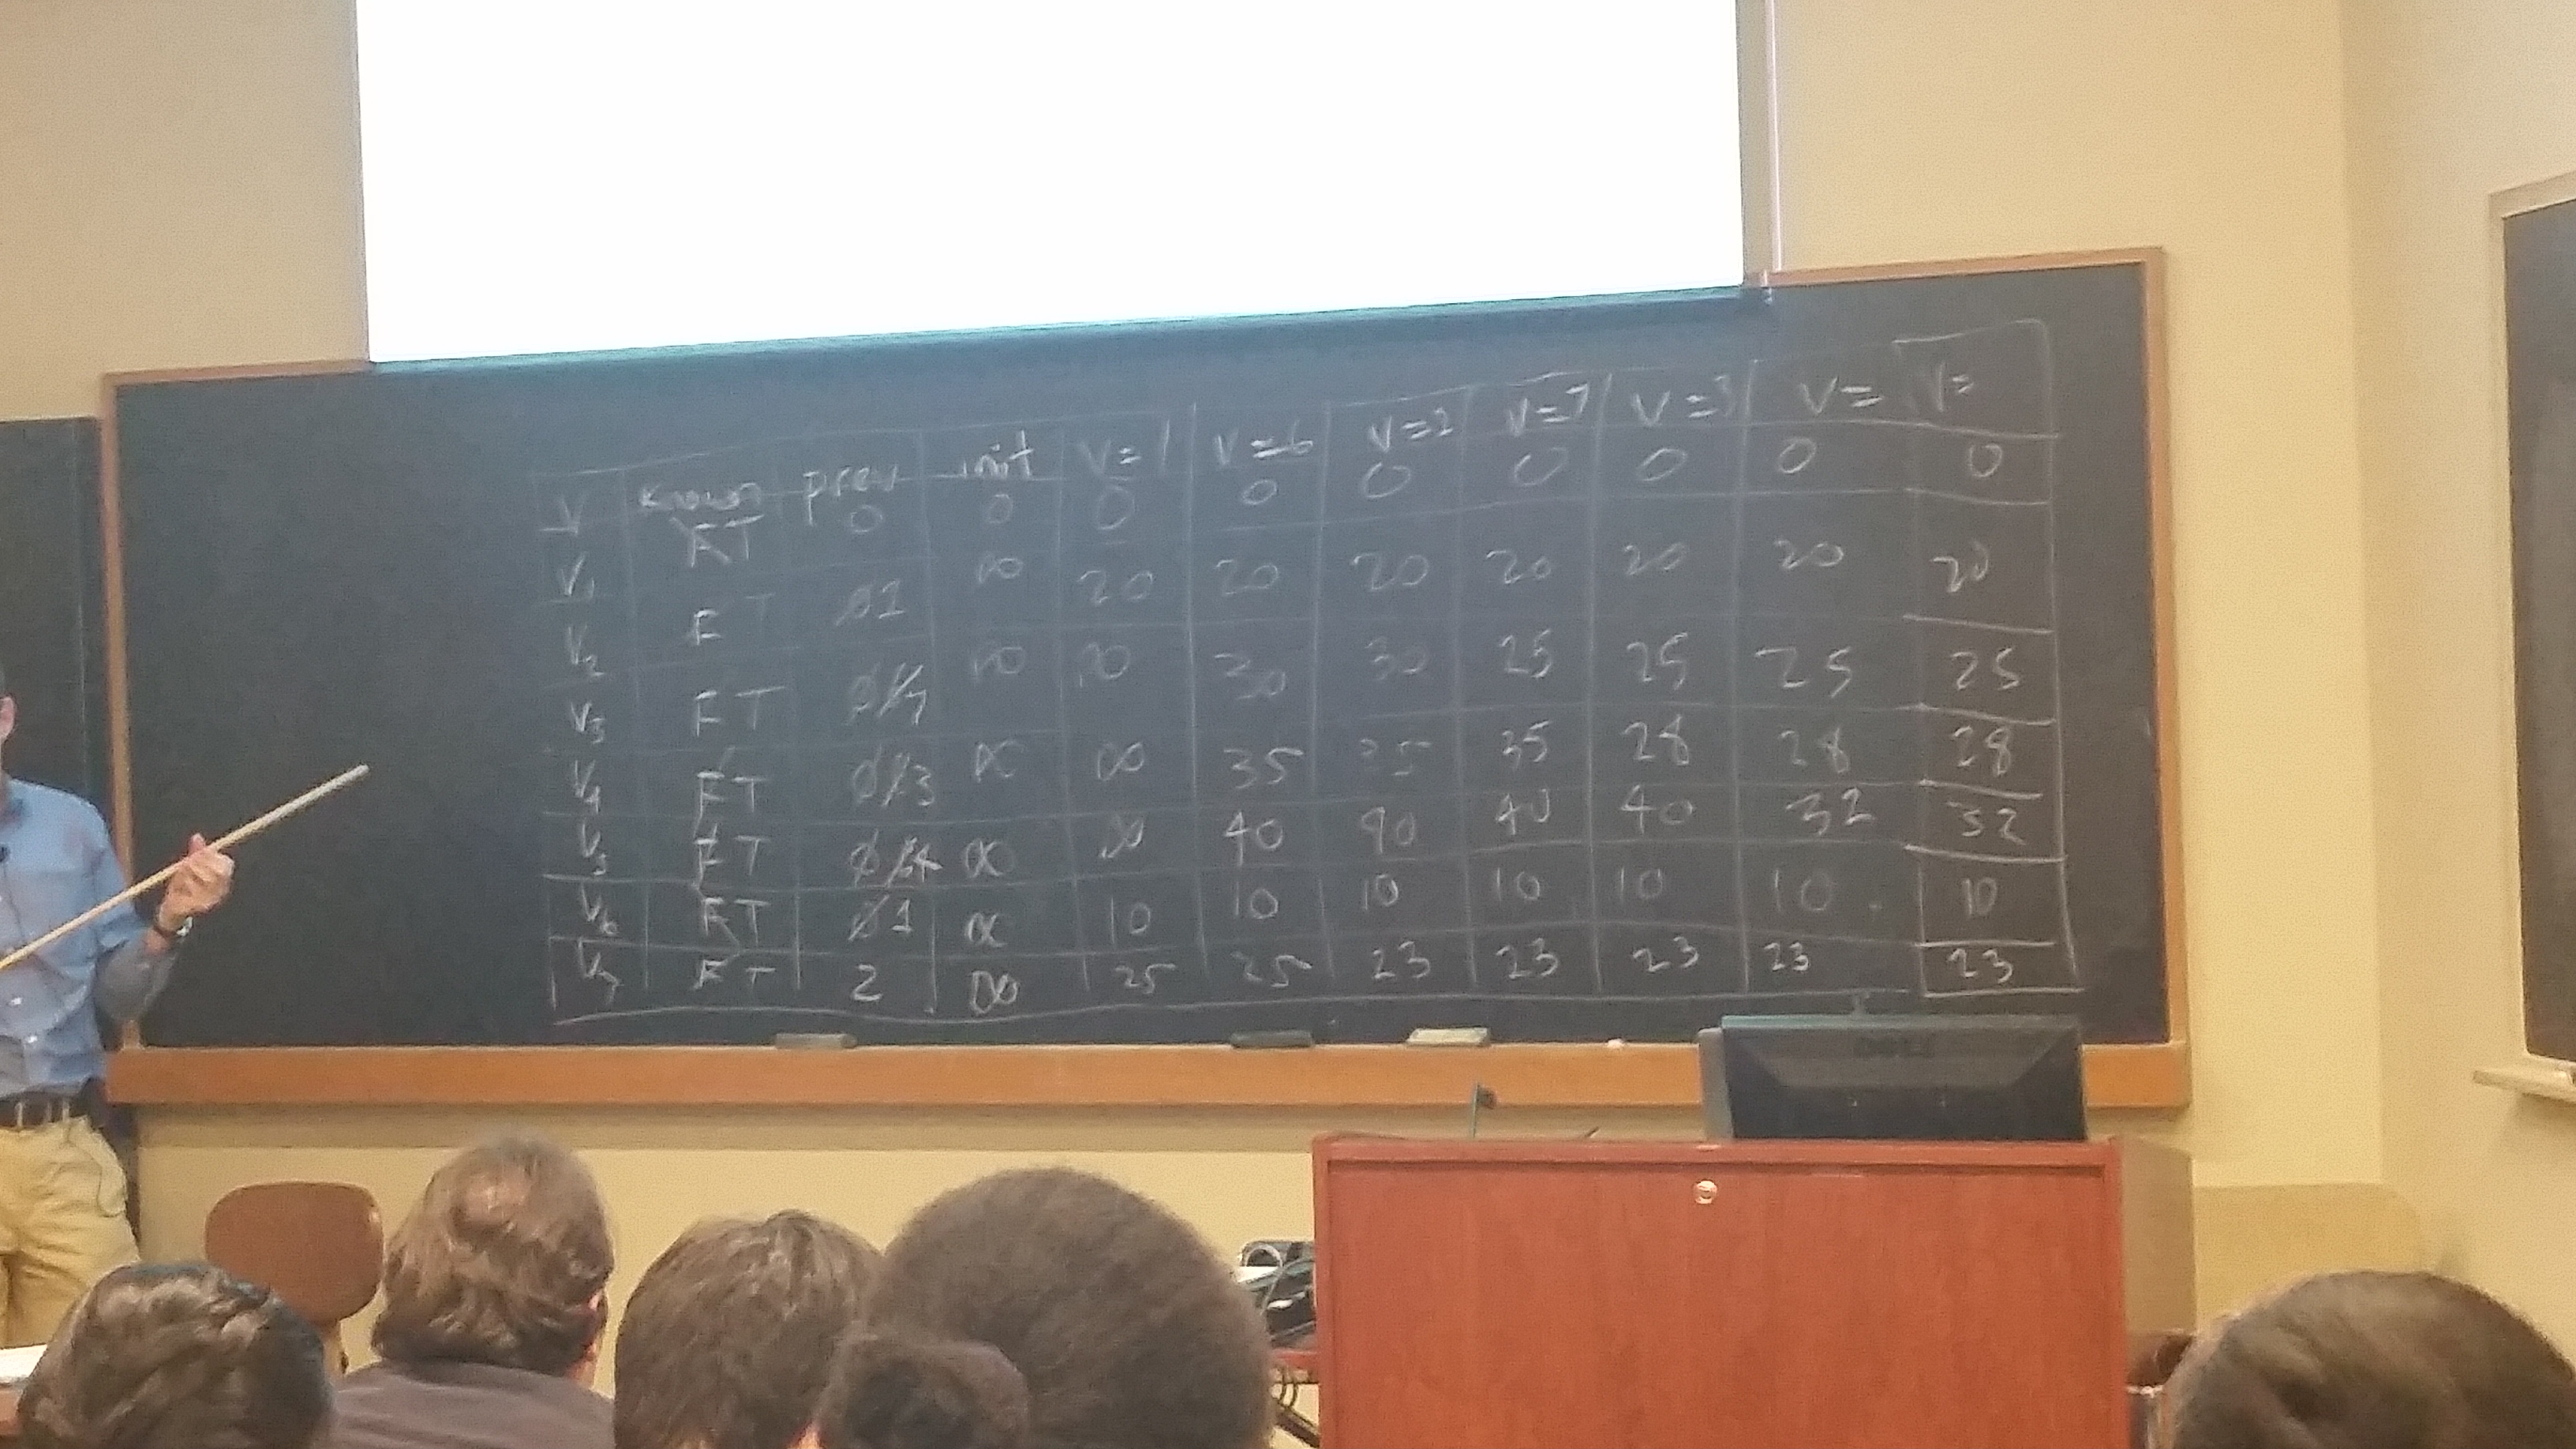 V known prev init V=1 V=6 V=2 V=7 V=3 V= V=
V1 F T 0 0 0 0 0 0 0 0 0
V2 F T 0 1 ∞ 20 20 20 20 20 20 20
V3 F T 0 1 7 ∞ 30 30 25 25 25 25
V4 F T 0 6 3 ∞ ∞ 35 35 35 28 28 28
V5 F T 0 6 4 ∞ ∞ 40 40 40 40 32 32
V6 F T 0 1 ∞ 10 10 10 10 10 10 10
V7 F T 2 ∞ 25 25 23 23 23 23 23